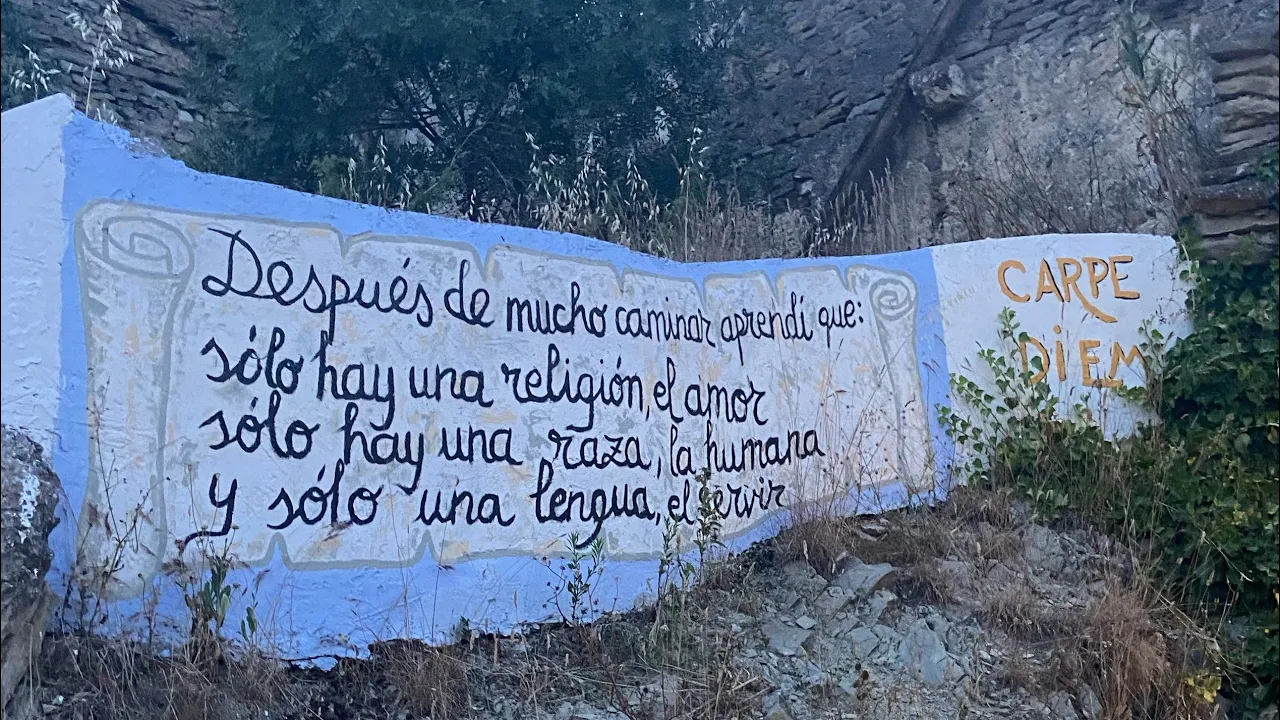 Después de mucho caminar aprendí que:
sólo hay una religión, el amor
sólo hay una raza, la humana
y sólo una lengua, el servir
CARPE
DiEM